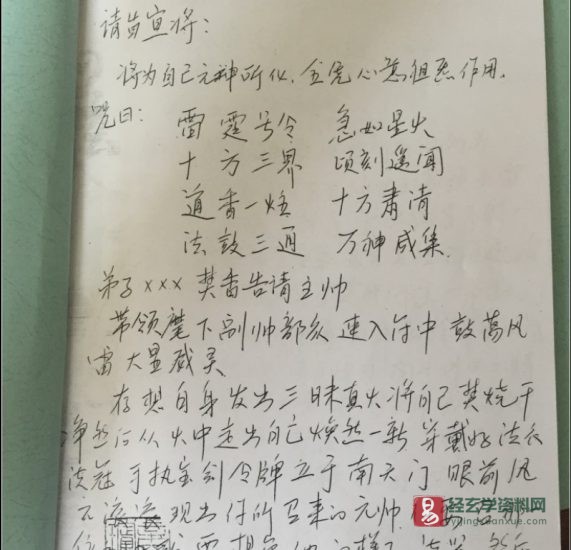 请旨宣将：
将为自己元神所化，全凭心意祖炁作用。
咒曰：雷霆号令 急如星火
十方三界 顷刻遥闻
道香一炷 十方肃清
法鼓三通 万神咸集
弟子xxx焚香告请主帅
带领麾下副帅部众 速入符中 鼓荡风
雷 大显威灵
存想自身发出三昧真火将自己焚烧干
净然后从火中走出自己焕然一新 穿戴好法衣
法冠 手执宝剑令牌立于南天门 眼前风
现出你所召来的元帅
轻玄学资料网